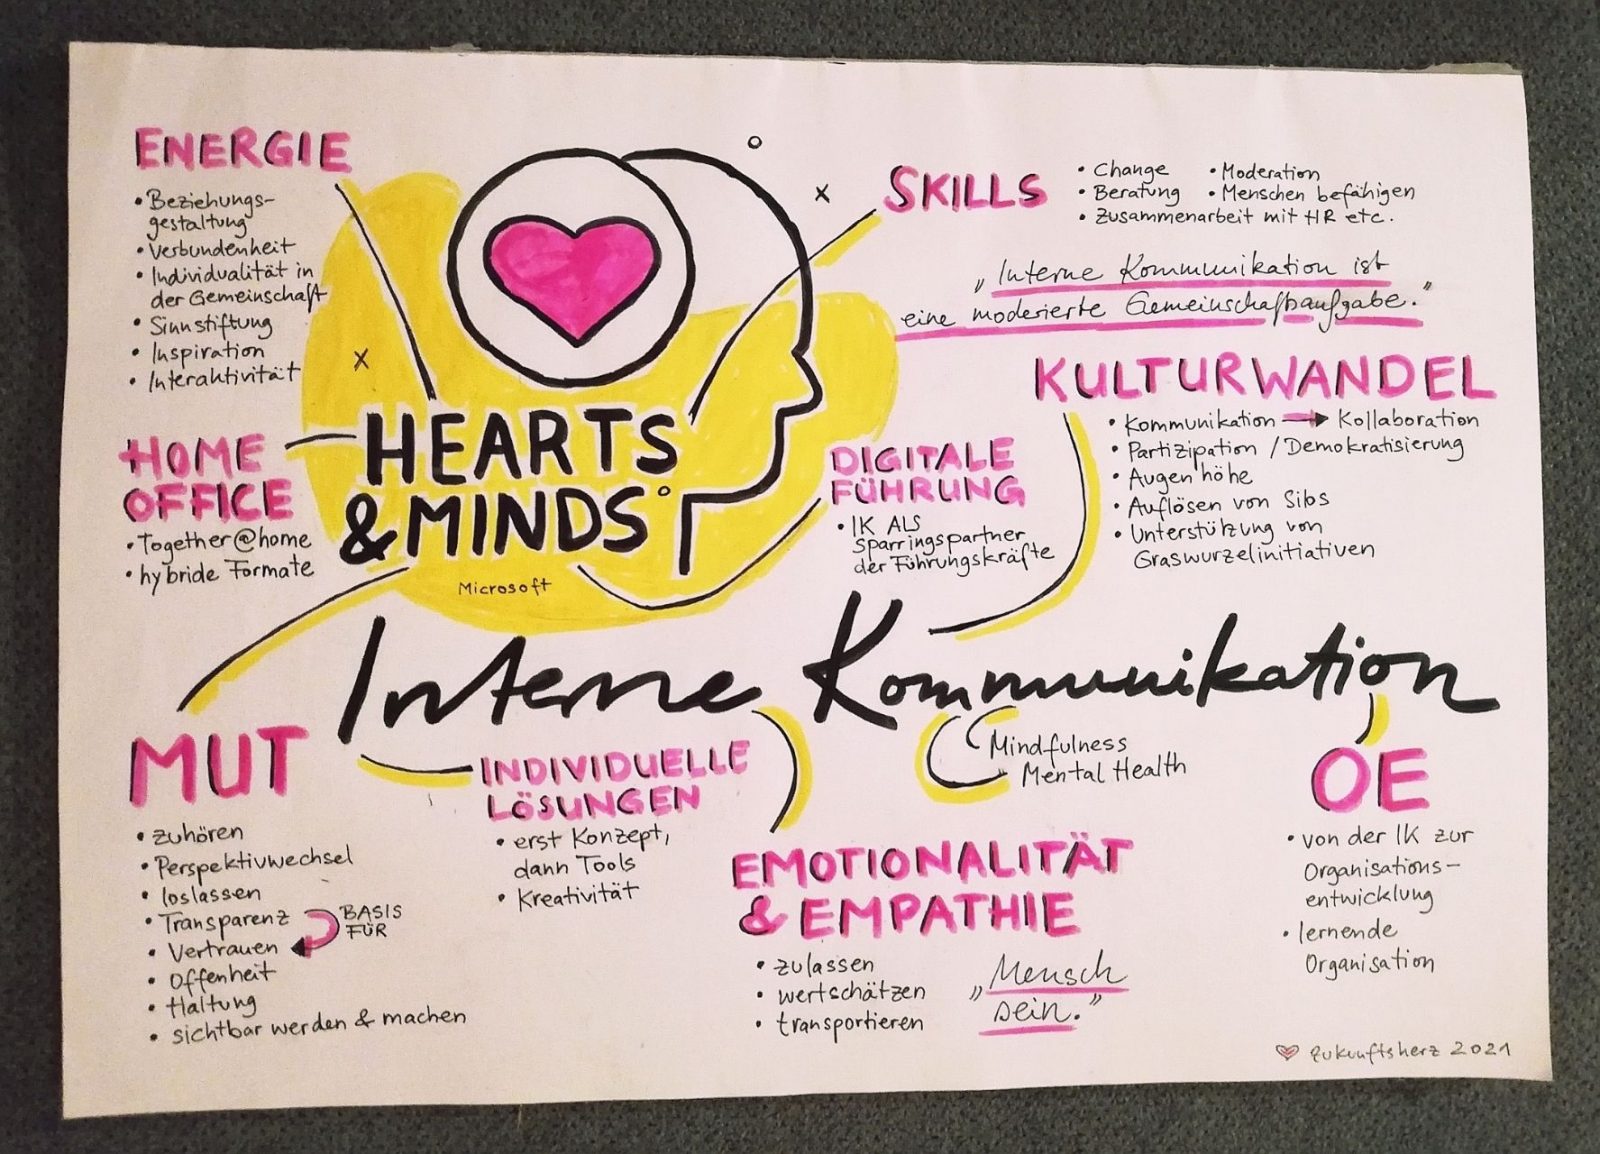 ENERGIE
• Beziehungs-
gestaltung
• Verbundenheit
• Individualität in
der Gemeinschaft
• Sinnstiftung
• Inspiration
• Interaktivität
HOME
OFFICE
• Together@home
• hybride Formate
HEARTS
& MINDS
Microsoft
SKILLS
• Change • Moderation
• Beratung • Menschen befähigen
• Zusammenarbeit mit HR etc.
„Interne Kommunikation ist
eine moderierte Gemeinschaftsaufgabe.“
KULTURWANDEL
• Kommunikation → Kollaboration
• Partizipation / Demokratisierung
• Augenhöhe
• Auflösen von Silos
• Unterstützung von
Graswurzelinitiativen
DIGITALE
FÜHRUNG
• IK ALS
Sparringspartner
der Führungskräfte
Interne Kommunikation
MUT
• zuhören
• Perspektivwechsel
• loslassen
• Transparenz
• Vertrauen
• Offenheit
• Haltung
• sichtbar werden & machen
BASIS
FÜR
INDIVIDUELLE
LÖSUNGEN
• erst Konzept,
dann Tools
• Kreativität
Mindfulness
Mental Health
EMOTIONALITÄT
& EMPATHIE
• zulassen
• wertschätzen
• transportieren
„Mensch
sein.“
OE
• von der IK zur
Organisations-
entwicklung
• lernende
Organisation
zukunftsherz 2021